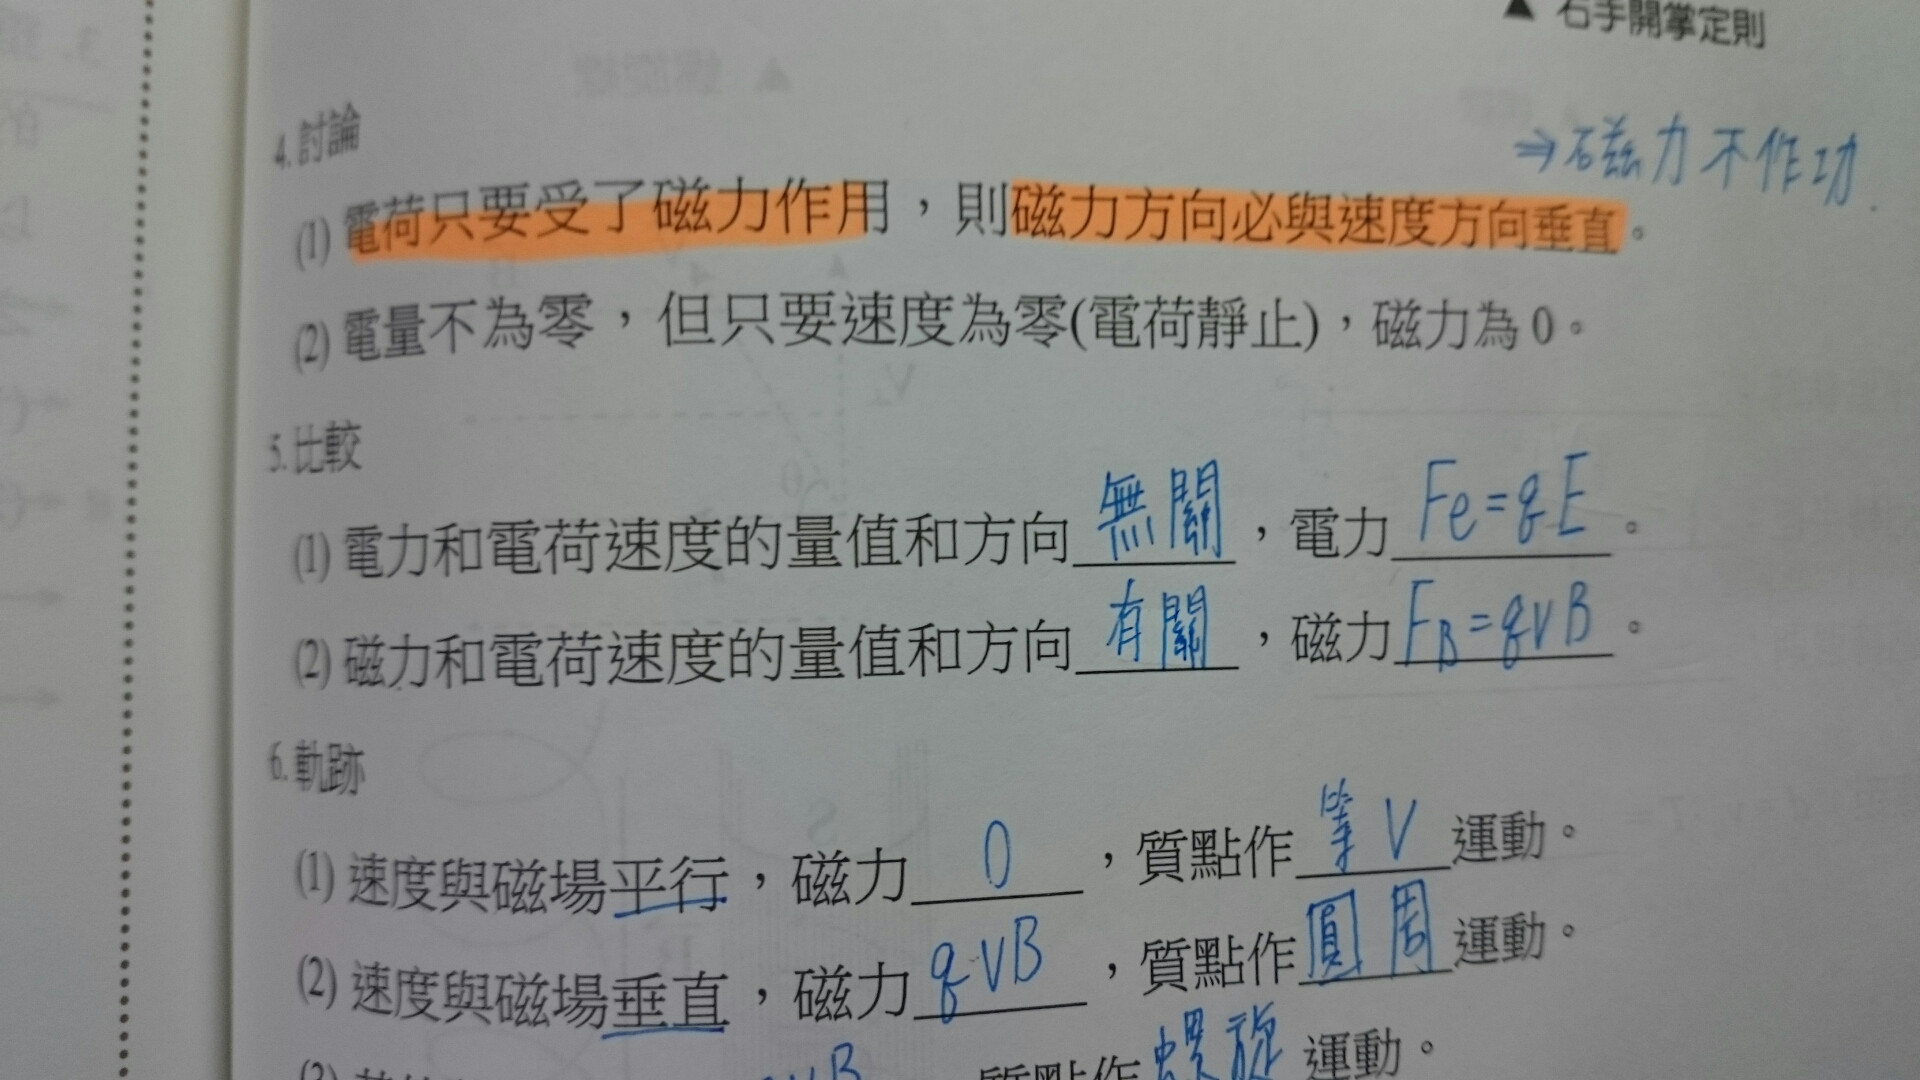 ▲ 右手開掌定則
4.討論
⇒磁力不作功.
(1) 電荷只要受了磁力作用，則磁力方向必與速度方向垂直。
(2) 電量不為零，但只要速度為零(電荷靜止)，磁力為0。
5.比較
(1) 電力和電荷速度的量值和方向無關，電力Fe=qE。
(2) 磁力和電荷速度的量值和方向有關，磁力FB=qvB。
6.軌跡
(1) 速度與磁場平行，磁力0，質點作等V運動。
(2) 速度與磁場垂直，磁力qVB，質點作圓周運動。
(3) 質點作螺旋運動。